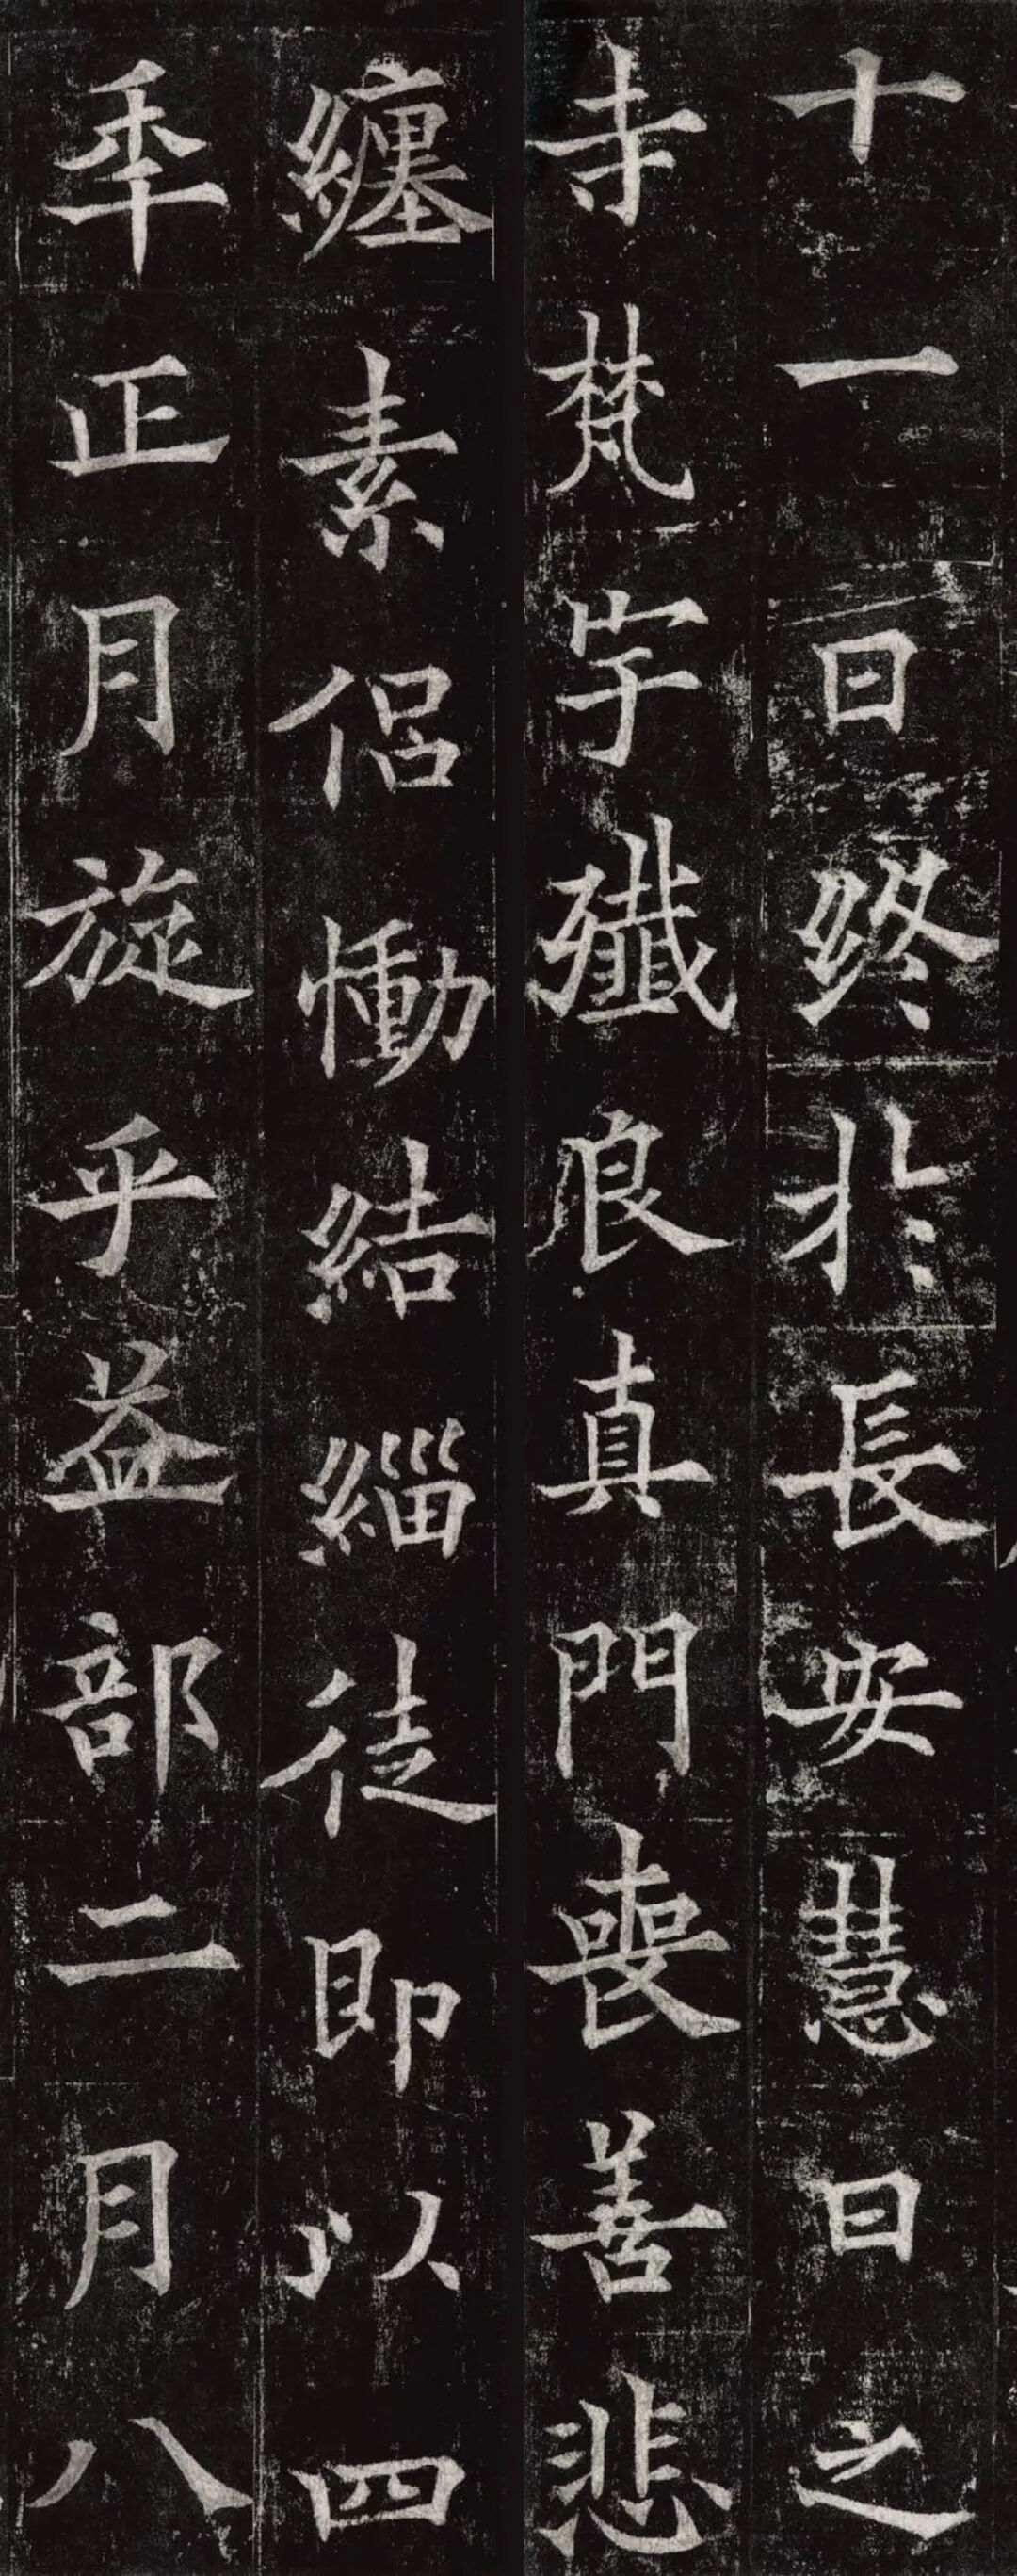 十一日終於長安慧日之
寺梵宇殲良真門喪善悲
纏素侶慟結緇徒即以四
年正月旋乎益部二月八